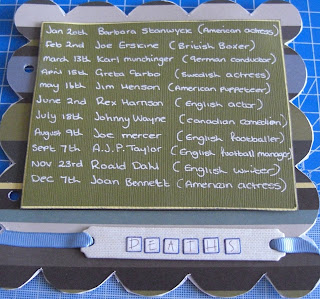 Jan 20th Barbara Stanwyck (American actress)
Feb 2nd Joe Erskine (British Boxer)
March 13th Karl munchinger (German conductor)
April 15th Greta Garbo (Swedish actress)
may 16th Jim Henson (American puppeteer)
June 2nd Rex Harrison (English actor)
July 18th Johnny Wayne (canadian comedian)
August 9th Joe mercer (English footballer)
Sept 7th A.J.P. Taylor (English football manager)
Nov 23rd Roald Dahl (English writer)
Dec 7th Joan Bennett (American actress)
DEATHS